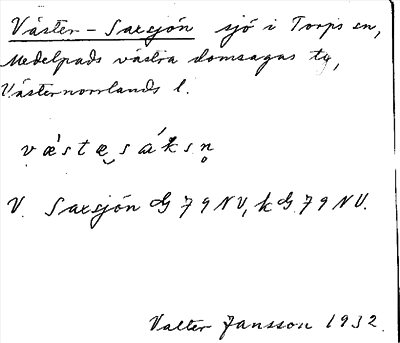 Väster-Saxsjön sjö i Torps sn,
Medelpads västra domsagas tg,
Västernorrlands l.
væ̀stæ̯sák̀sn̥
V. Saxsjön G 79 NV, k G 79 NV.
Valter Jansson 1932.